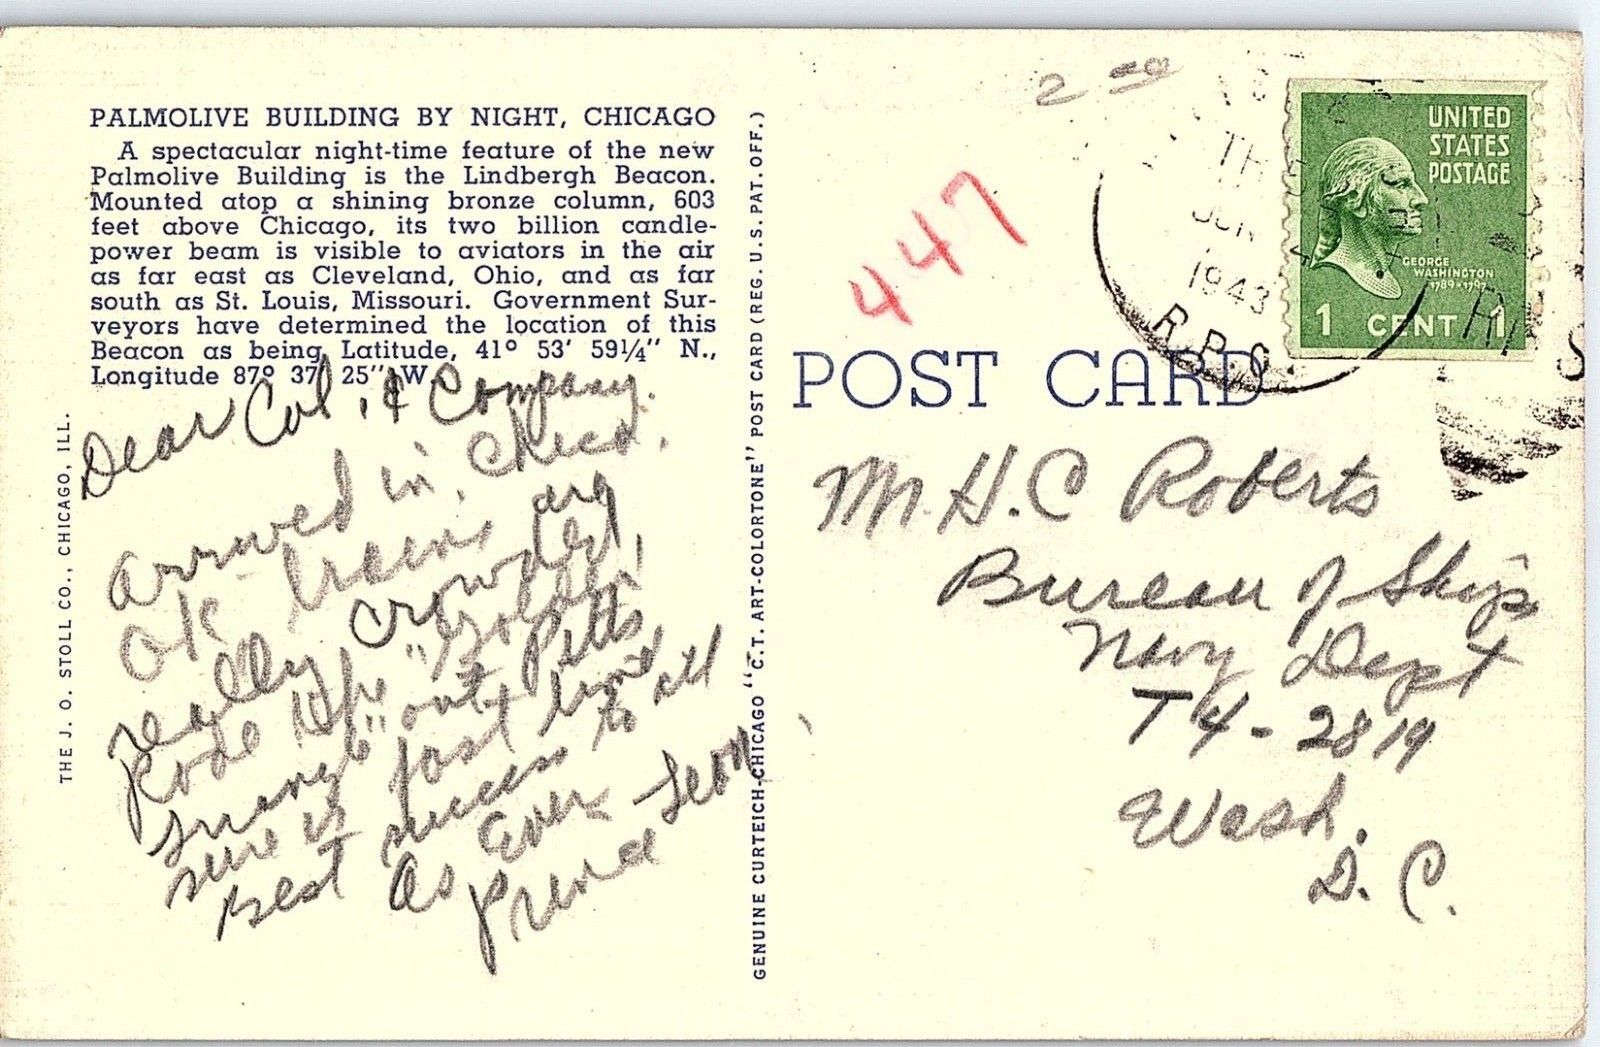 PALMOLIVE BUILDING BY NIGHT, CHICAGO
A spectacular night-time feature of the new
Palmolive Building is the Lindbergh Beacon.
Mounted atop a shining bronze column, 603
feet above Chicago, its two billion candle-
power beam is visible to aviators in the air
as far east as Cleveland, Ohio, and as far
south as St. Louis, Missouri. Government Sur-
veyors have determined the location of this
Beacon as being Latitude, 41° 53' 59¼" N.,
Longitude 87° 37' 25" W.
THE J. O. STOLL CO., CHICAGO, ILL.
Dear Col. & Company.
arrived in Chicago.
OK trains are
really crowded,
Rode the "Golden
Triangle" out Pitts,
sure is fast
best success to all
As Ever
Friend Leon
GENUINE CURTEICH-CHICAGO "C.T. ART-COLORTONE" POST CARD (REG. U.S. PAT. OFF.)
2 00
447
JUN
1943
R.P.O.
UNITED
STATES
POSTAGE
GEORGE
WASHINGTON
1789-1797
1 CENT 1
POST CARD
Mr. H.C Roberts
Bureau of Ships
Navy Dept
T4-2819
Wash.
D. C.